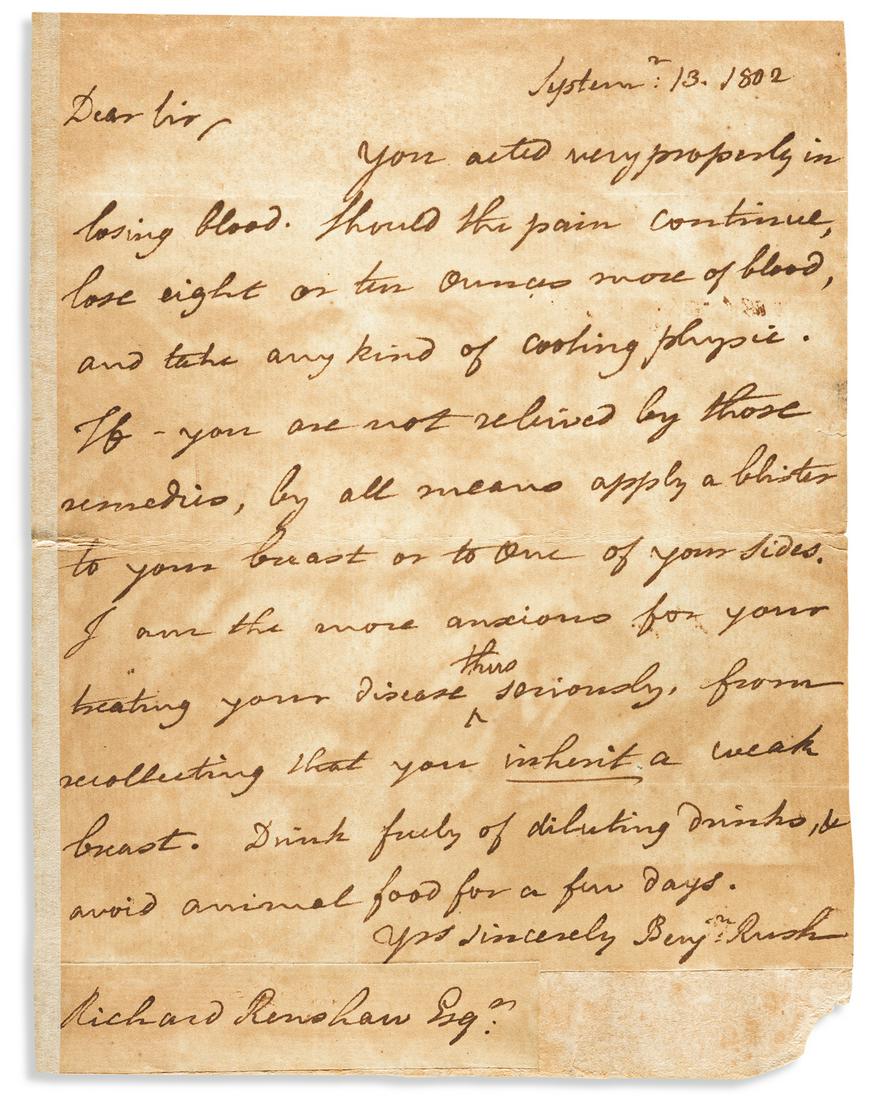 Systemr: 13. 1802
Dear Sir,
You acted very properly in
losing blood. Should the pain continue,
lose eight or ten Ounces more of blood,
and take any kind of cooling physic.
If - you are not relieved by those
remedies, by all means apply a blister
to your breast or to One of your sides.
I am the more anxious for your
thus
treating your disease ^ seriously, from
recollecting that you inherit a weak
breast. Drink freely of diluting drinks, &
avoid animal food for a few days.
Yrs sincerely Benjn: Rush
Richard Renshaw Esqr: